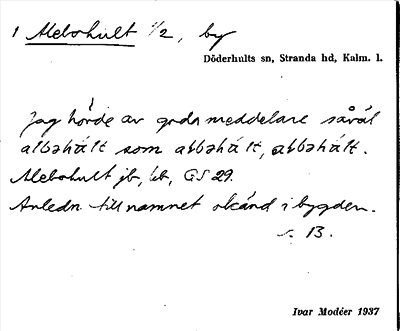 1 Alebohult 1/2, by
Döderhults sn, Stranda hd, Kalm. l.
Jag hörde av goda meddelare såväl
albəhált som abbəhált, abbəhált.
Alebohult jb, kb, GS 29.
Anledn. till namnet okänd i bygden.
s. 13.
Ivar Modéer 1937